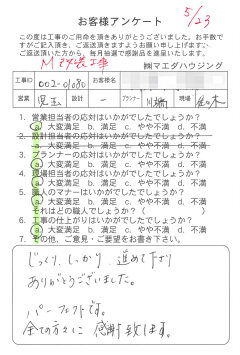 お客様アンケート
5/23
この度は工事のご用命を頂きありがとうございました。お手数で
すがご記入頂き、ご返送頂きますようお願い申し上げます。
ご返送頂いた方から、毎月抽選で感謝品を進呈いたします。
M改装工事
㈱マエダハウジング
工事ID 002-01080 お客様名
営業 児玉 設計 - プランナー 川崎 現場 佐々木
1. 営業担当者の応対はいかがでしたでしょうか?
a. 大変満足 b. 満足 c. やや不満 d. 不満
2. 設計担当者の応対はいかがでしたでしょうか?
a. 大変満足 b. 満足 c. やや不満 d. 不満
3. プランナーの応対はいかがでしたでしょうか?
a. 大変満足 b. 満足 c. やや不満 d. 不満
4. 現場担当者の応対はいかがでしたでしょうか?
a. 大変満足 b. 満足 c. やや不満 d. 不満
5. 職人のマナーはいかがでしたでしょうか?
a. 大変満足 b. 満足 c. やや不満 d. 不満
それはどの職人でしょうか? ( )
6. 工事の仕上がりはいかがでしたでしょうか?
a. 大変満足 b. 満足 c. やや不満 d. 不満
7. その他、ご意見・ご要望をお書き下さい。
じっくり、しっかり 進めて下さり
ありがとうございました。
パーフェクトです。
全ての方々に 感謝致します。